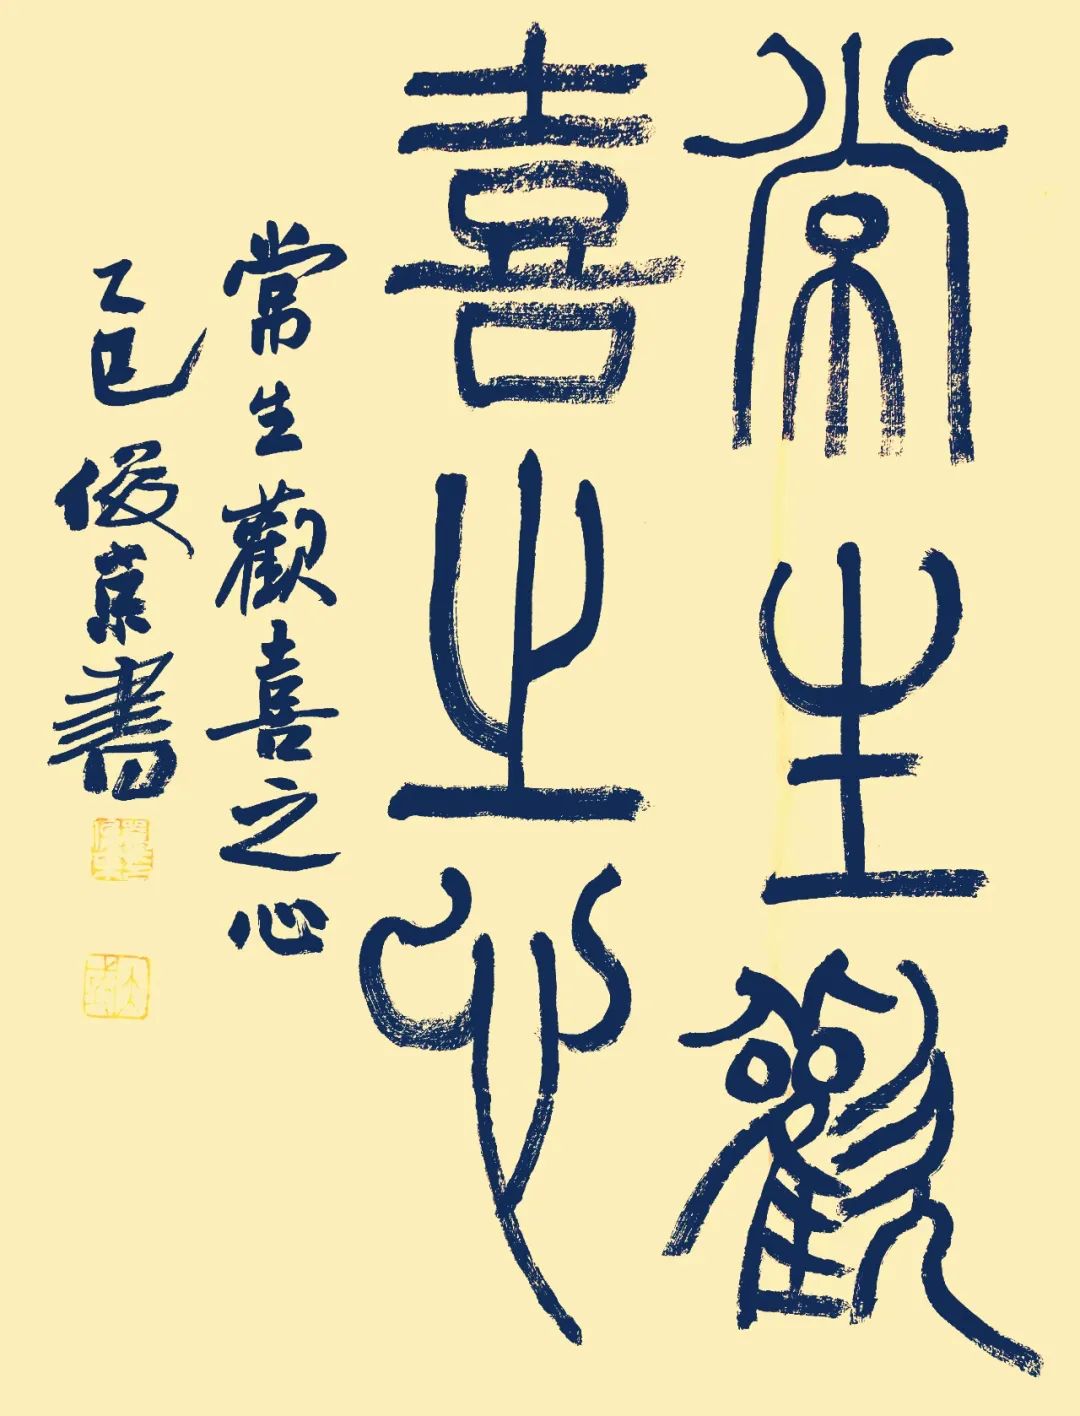 常生歡
喜之心
常生歡喜之心
乙巳俊京書